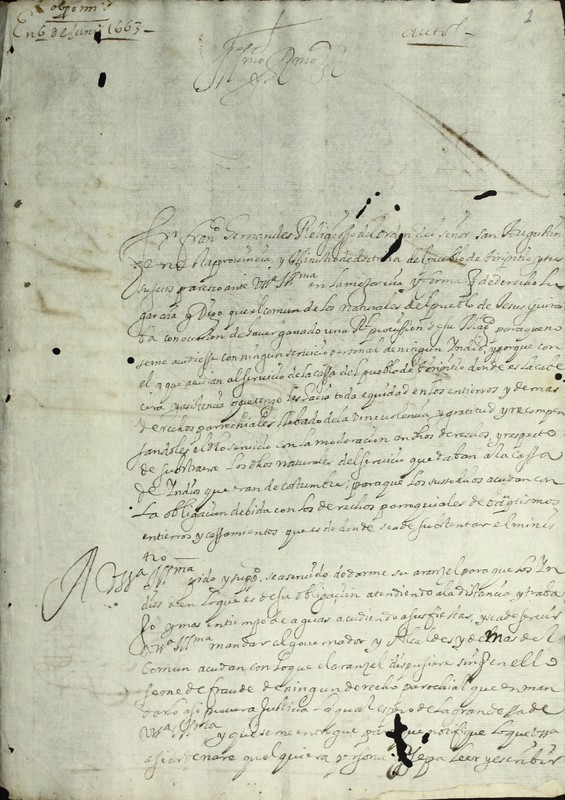 en 6 de Junio 1663
autos
Illmo Rmo Sr
Fr. Franco Fernandes Religiosso del orden del señor san Augustin
de nra provincia, y Ministro de doctrina del pueblo de tiripitio y sus
sujetos paresco ante Vssa Illma en la mejor via y forma q de derecho lu
gar aia y Digo que el comun de los Naturales del pueblo de Jesus
con ocacion de haver ganado una Rl provission de su Magd para que no
se me acudiesse con ningun servicio personal de ningun Indio, y porque con
el q me acudian al servicio de la cassa del pueblo de tiripitio donde es la cabe
cera y asistencia que tengo les hacia toda equidad en los entierros y demas
derechos parrochiales llebado de la venevolencia y gratitud y recompen
sandoles el dho servicio con la moderacion en dhos derechos, y respecto
de subtraerse los dhos naturales del servicio que daban a la cassa
de Indios que eran de costumbre; para que los susodhos acudan con
la obligacion debida con los derechos parroquiales de baptismos
entierros y cassamientos que es de donde se a de sustentar el minis
tro
A Vssa Illma pido y suppco sea servido de darme su aranzel para que los In
dios den lo que es de su obligacion atendiendo a la distancia, y traba
jo y mas en tiempo de aguas acudiendo a sus fiestas, y se a de servir
Vssa Illma mandar al governador y Alcaldes y demas del
Comun acudan con lo que el aranzel dispusiere sin q en ello
se me defraude de ningun derecho parrochial que en man
darlo asi provera Justicia la qual espero de la grandessa de
Vssa Illma y que se me entregue pa que notifique lo que Vssa
asi ordenare qualquiera persona q sepa leer y escribir